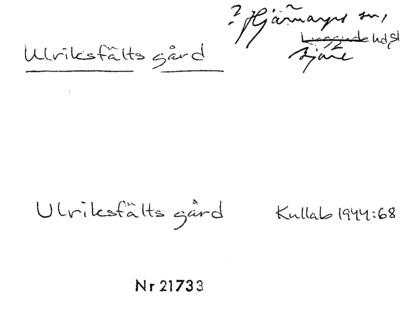 ? Hjärnarps sn,
Ulriksfälts gård
Luggude hd sk
Bjäre
Ulriksfälts gård Kullab 1944:68
Nr 21733